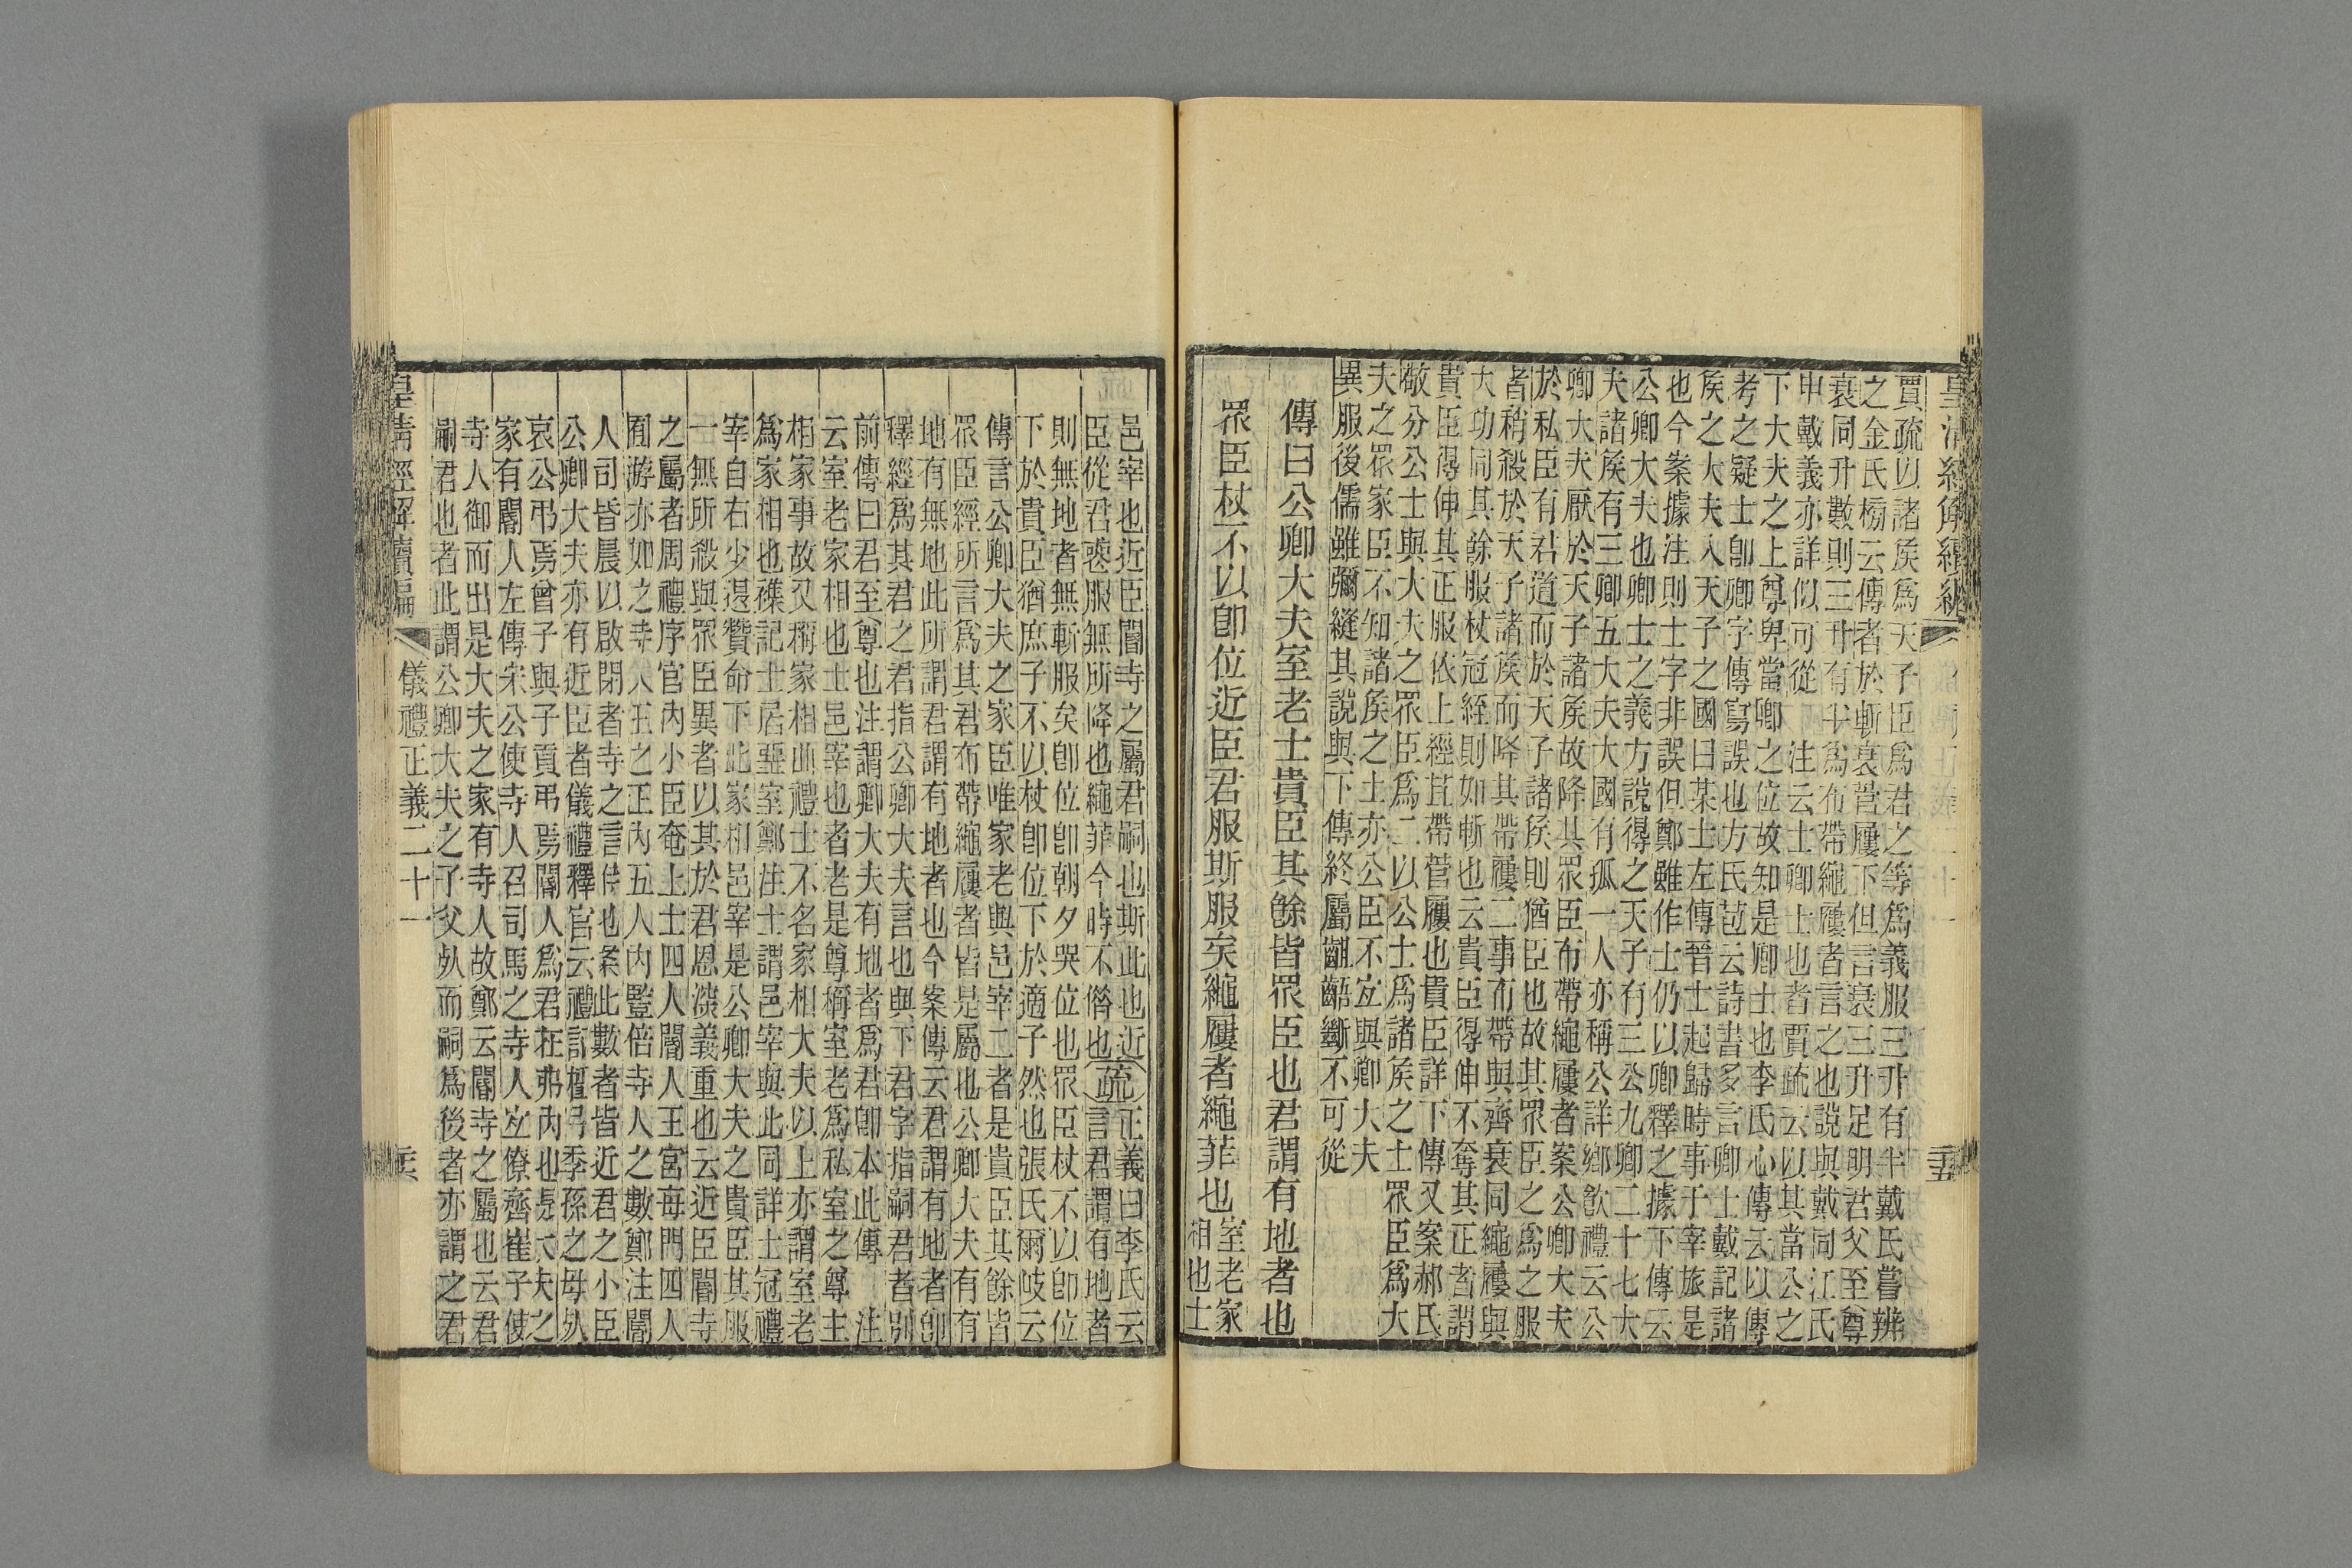 皇清經解續編
二十五
賈疏以諸矦爲天子臣爲君之等爲義服三升有半戴氏嘗辨
之金氏榜云傳者於斬衰菅屨下但言衰三升足明君父至尊
衰同升數則三升有半爲布帶繩屨者言之也說與戴同江氏
中戴義亦詳似可從　注云士卿士也者賈疏云以其當公之
下大夫之上尊卑當卿之位故知是卿士也李氏心傳云以傳
考之疑士卽卿字傳寫誤也方氏苞云詩書多言卿士戴記諸
矦之大夫入天子之國曰某士左傳晉士起歸時事于宰旅是
也今案據注則士字非誤但鄭雖作士仍以卿釋之據下傳云
公卿大夫也卿士之義方說得之天子有三公九卿二十七大
夫諸矦有三卿五大夫大國有孤一人亦稱公詳鄉飮禮云公
卿大夫厭於天子諸矦故降其眾臣布帶繩屨者案公卿大夫
於私臣有君道而於天子諸矦則猶臣也故其眾臣之爲之服
者稍殺於天子諸矦而降其帶屨二事布帶與齊衰同繩屨與
大功同其餘服杖冠絰則如斬也云貴臣得伸不奪其正者謂
貴臣得伸其正服依上經苴帶菅屨也貴臣詳下傳又案郝氏
敬分公士與大夫之眾臣爲二以公士爲諸矦之士眾臣爲大
夫之眾家臣不知諸矦之士亦公臣不宜與卿大夫
異服後儒雖彌縫其說與下傳終屬齟齬斷不可從
傳曰公卿大夫室老士貴臣其餘皆眾臣也君謂有地者也
眾臣杖不以卽位近臣君服斯服矣繩屨者繩菲也室老家
相也士
邑宰也近臣閽寺之屬君嗣也斯此也近疏正義曰李氏云
臣從君喪服無所降也繩菲今時不借也言君謂有地者
則無地者無斬服矣卽位卽朝夕哭位也眾臣杖不以卽位
下於貴臣猶庶子不以杖卽位下於適子然也張氏爾岐云
傳言公卿大夫之家臣唯家老與邑宰二者是貴臣其餘皆
眾臣經所言爲其君布帶繩屨者皆是屬也公卿大夫有有
地有無地此所謂君謂有地者也今案傳云君謂有地者卽
釋經爲其君之君指公卿大夫言也與下君字指嗣君者別
前傳曰君至尊也注謂卿大夫有地者爲君卽本此傳　注
云室老家相也士邑宰也者老是尊稱室老爲私室之尊主
相家事故又稱家相曲禮士不名家相大夫以上亦謂室老
爲家相也襍記士居堊室鄭注士謂邑宰與此同詳士冠禮
宰自右少退贊命下此家相邑宰是公卿大夫之貴臣其服
一無所殺與眾臣異者以其於君恩深義重也云近臣閽寺
之屬者周禮序官內小臣奄上士四人閽人王宮每門四人
囿游亦如之寺人王之正內五人內豎倍寺人之數鄭注閽
人司皆晨以啟閉者寺之言侍也案此數者皆近君之小臣
公卿大夫亦有近臣者儀禮釋官云禮記檀弓季孫之母死
哀公弔焉曾子與子貢弔焉閽人爲君在弗內也是大夫之
家有閽人左傳宋公使寺人召司馬之寺人宜僚齊崔子使
寺人御而出是大夫之家有寺人故鄭云閽寺之屬也云君
嗣君也者此謂公卿大夫之子父死而嗣爲後者亦謂之君
皇清經解續編
儀禮正義二十一